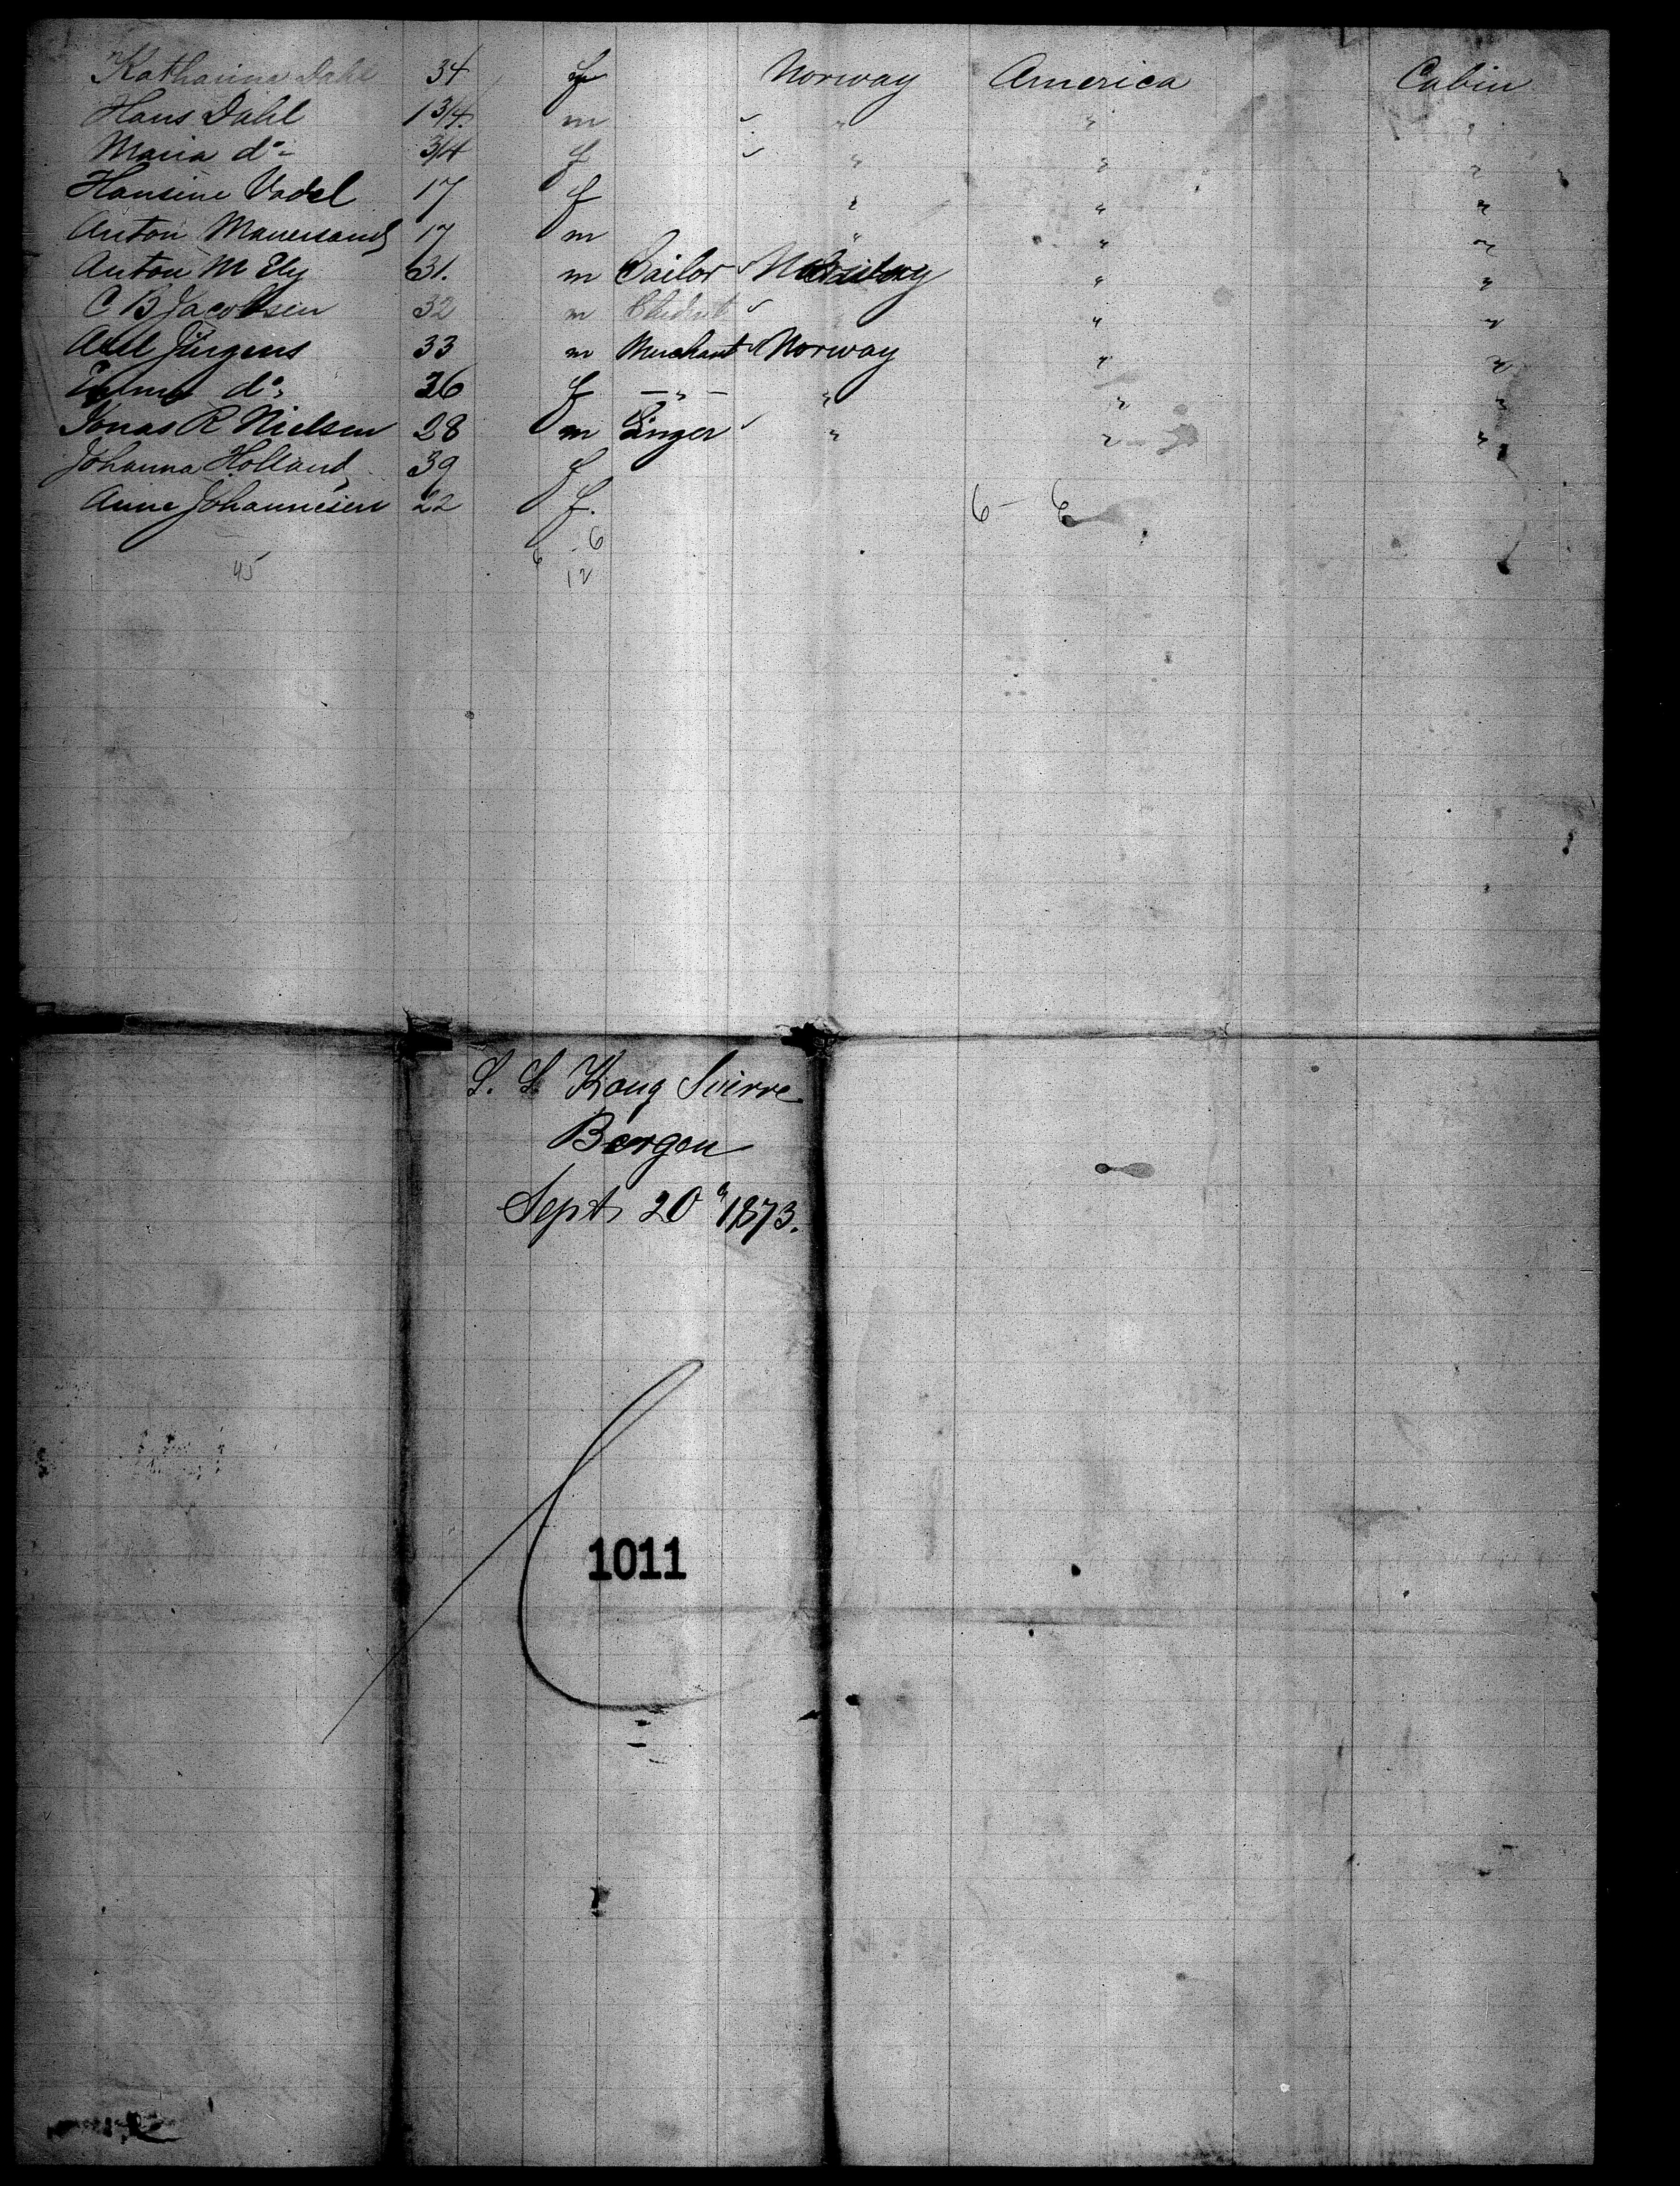 Katharine Dahl 34 f Norway America Cabin
Hans Dahl 1 3/4 m " " "
Maria do 3/4 f " " "
Hansine Vadel 17 f " " "
Anton 17 m " " "
Anton M Ely 31. m Sailor " "
C B Jacobsen 32 m Student " "
Axel Jürgens 33 m Merchant Norway " "
do " 26 f — " — " " "
Jonas R Nielsen 28 m Singer " " "
Johanna Holland 39 f
Anne Johannesen 22 f. 6 - 6
6 - 6
45 12
S. S. Kong Sverre
Bergen
Sept 20" 1873.
1011